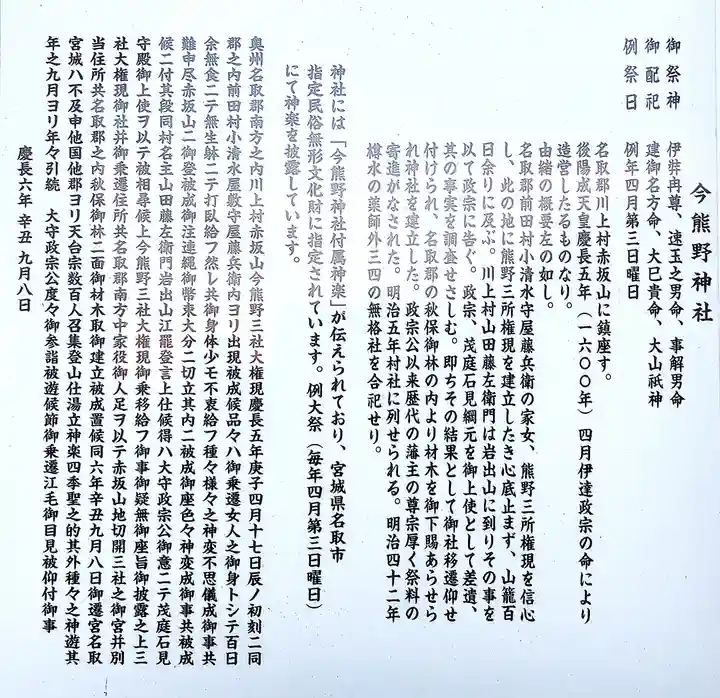 今熊野神社
御祭神　伊弉冉尊、速玉之男命、事解男命
御配祀　建御名方命、大巳貴命、大山祇神
例祭日　例年四月第三日曜日
名取郡川上村赤坂山に鎮座す。
後陽成天皇慶長五年（一六００年）四月伊達政宗の命により
造営したるものなり。
由緒の概要左の如し。
名取郡前田村小清水守屋藤兵衛の家女、熊野三所権現を信心
し、此の地に熊野三所権現を建立したき心底止まず、山籠百
日余りに及ぶ。川上村山田藤左衛門は岩出山に到りその事を
以て政宗に告ぐ。政宗、茂庭石見綱元を御上使として差遣、
其の事実を調査せさしむ。即ちその結果として御社移遷仰せ
付けられ、名取郡の秋保御林の内より材木を御下賜あらせら
れ神社を建立した。政宗公以来歴代の藩主の尊宗厚く祭料の
寄進がなされた。明治五年村社に列せられる。明治四十二年
樽水の薬師外三四の無格社を合祀せり。
神社には「今熊野神社付属神楽」が伝えられており、宮城県名取市
指定民俗無形文化財に指定されています。例大祭（毎年四月第三日曜日）
にて神楽を披露しています。
奥州名取郡南方之内川上村赤坂山今熊野三社大権現慶長五年庚子四月十七日辰ノ初刻二同
郡之内前田村小清水屋敷守屋藤兵衛内ヨリ出現被成候品々ハ御乗遷女人之御身トシテ百日
余無食二テ無生躰二テ打臥給フ然レ共御身体少モ不衷給フ種々様々之神変不思儀成御事共
難申尽赤坂山二御登被成御注連縄御幣束大分二切立其内二被成御座色々神変成御事共被成
候二付其段同村名主山田藤左衛門岩出山江罷登言上仕候得ハ大守政宗公御意二テ茂庭石見
守殿御上使ヲ以テ被相尋候上今熊野三社大権現御乗移給フ御事御疑無御座旨御披露之上三
社大権現御社并御乗遷住所共名取郡南方中家役御人足ヲ以テ赤坂山地切開三社之御宮并別
当住所共名取郡之内秋保御林二面御材木取御建立被成置候同六年辛丑九月八日御遷宮名取
宮城ハ不及申他国他郡ヨリ天台宗数百人召集登山仕湯立神楽四季聖之的其外種々之神遊其
年之九月ヨリ年々引続　大守政宗公度々御参詣被遊候節御乗遷江毛御目見被仰付御事
慶長六年　辛丑　九月八日